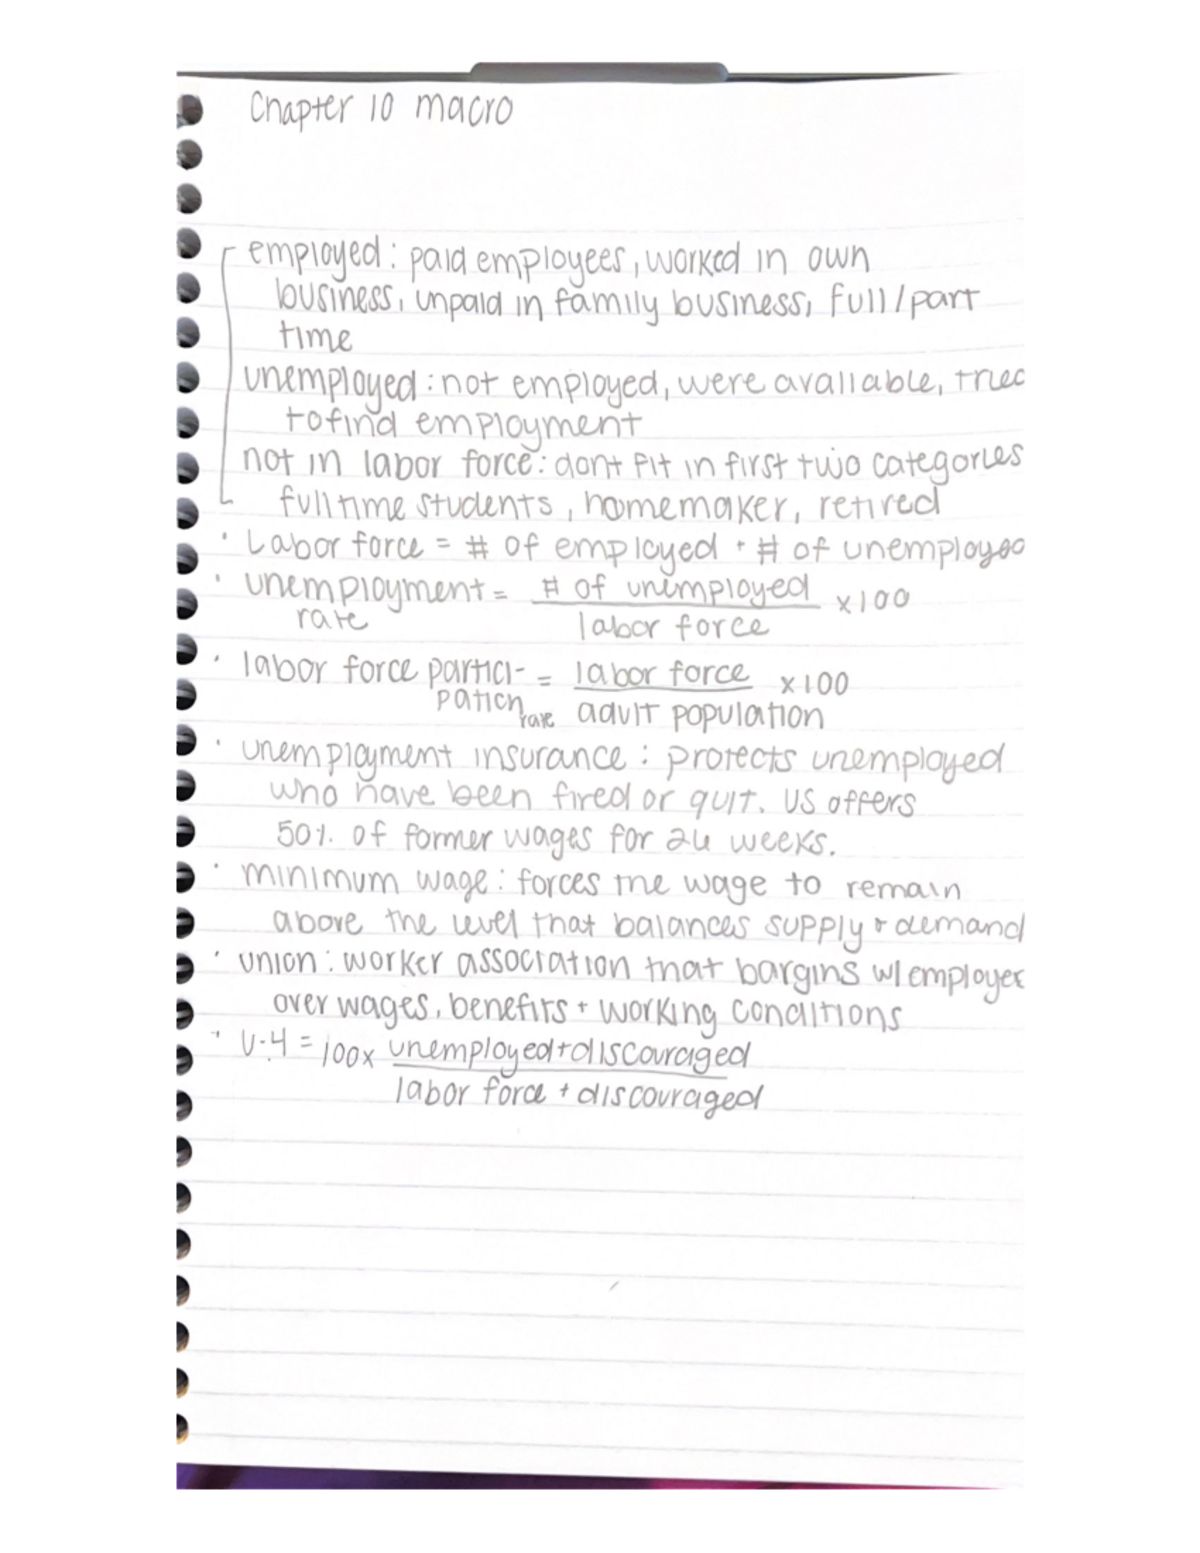 Chapter 10 macro
employed: paid employees, worked in own
business, unpaid in family business, full/part
time
unemployed: not employed, were available, tried
to find employment
not in labor force: dont fit in first two categories
full time students, homemaker, retired
· Labor force = # of employed + # of unemployed
· unemployment = # of unemployed x100
rate labor force
· labor force partici- = labor force x100
pation rate adult population
· unemployment insurance: protects unemployed
who have been fired or quit. US offers
50% of former wages for 26 weeks.
· minimum wage: forces the wage to remain
above the level that balances supply + demand
· union: worker association that bargins w/ employer
over wages, benefits + working conditions
· U-4 = 100x unemployed + discouraged
labor force + discouraged